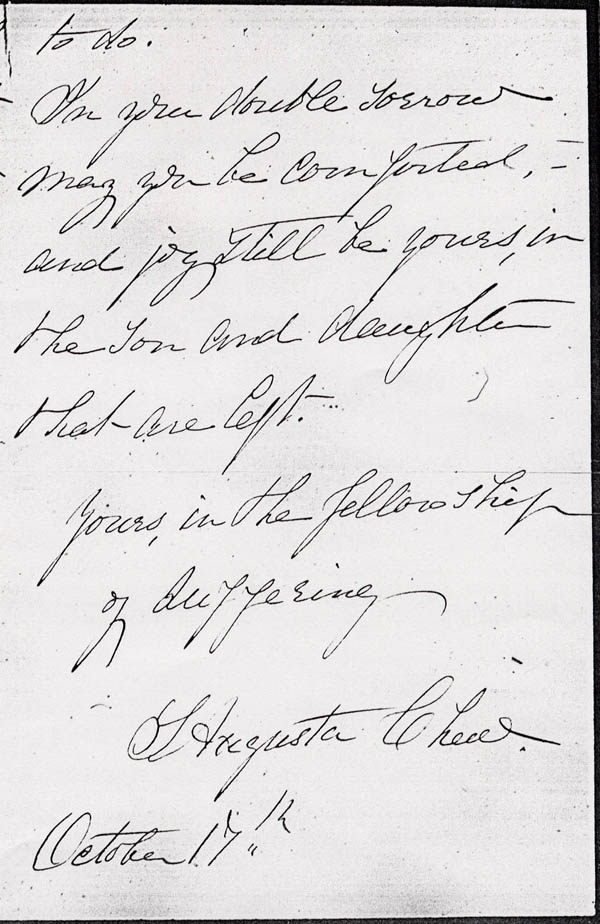 to do.
In your double sorrow
may you be comforted, –
and joy still be yours, in
the son and daughter
that are left.
Yours, in the fellowship
of suffering
Augusta Chew.
October 17th